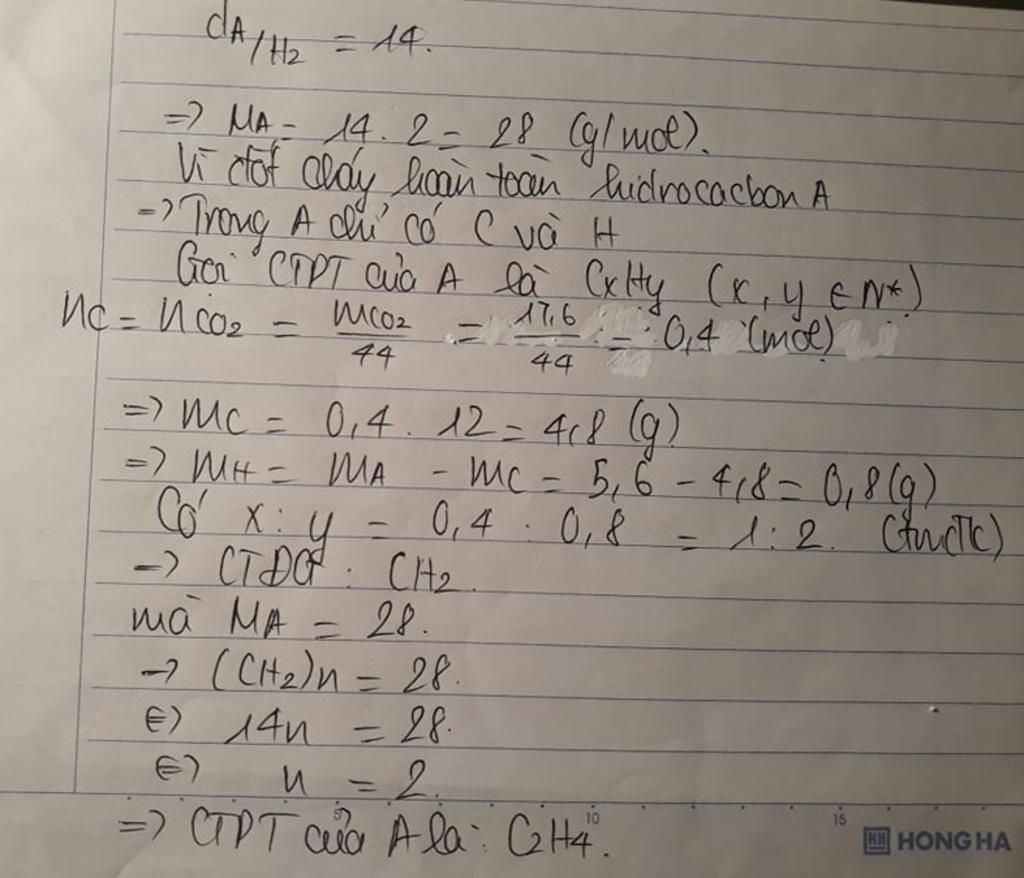 dA/H2 = 14.
=> MA = 14 . 2 = 28 (g/mol).
Vì đốt cháy hoàn toàn hidrocacbon A
=> Trong A chỉ có C và H
Gọi CTPT của A là CxHy (x, y ∈ N*)
nC = nCO2 = mCO2/44 = 17,6/44 = 0,4 (mol)
=> mC = 0,4 . 12 = 4,8 (g)
=> mH = mA - mC = 5,6 - 4,8 = 0,8 (g)
Có x : y = 0,4 : 0,8 = 1 : 2.
-> CTĐG : CH2.
mà MA = 28.
-> (CH2)n = 28.
<=> 14n = 28.
<=> n = 2.
=> CTPT của A là : C2H4.
5 10 15
HONG HA